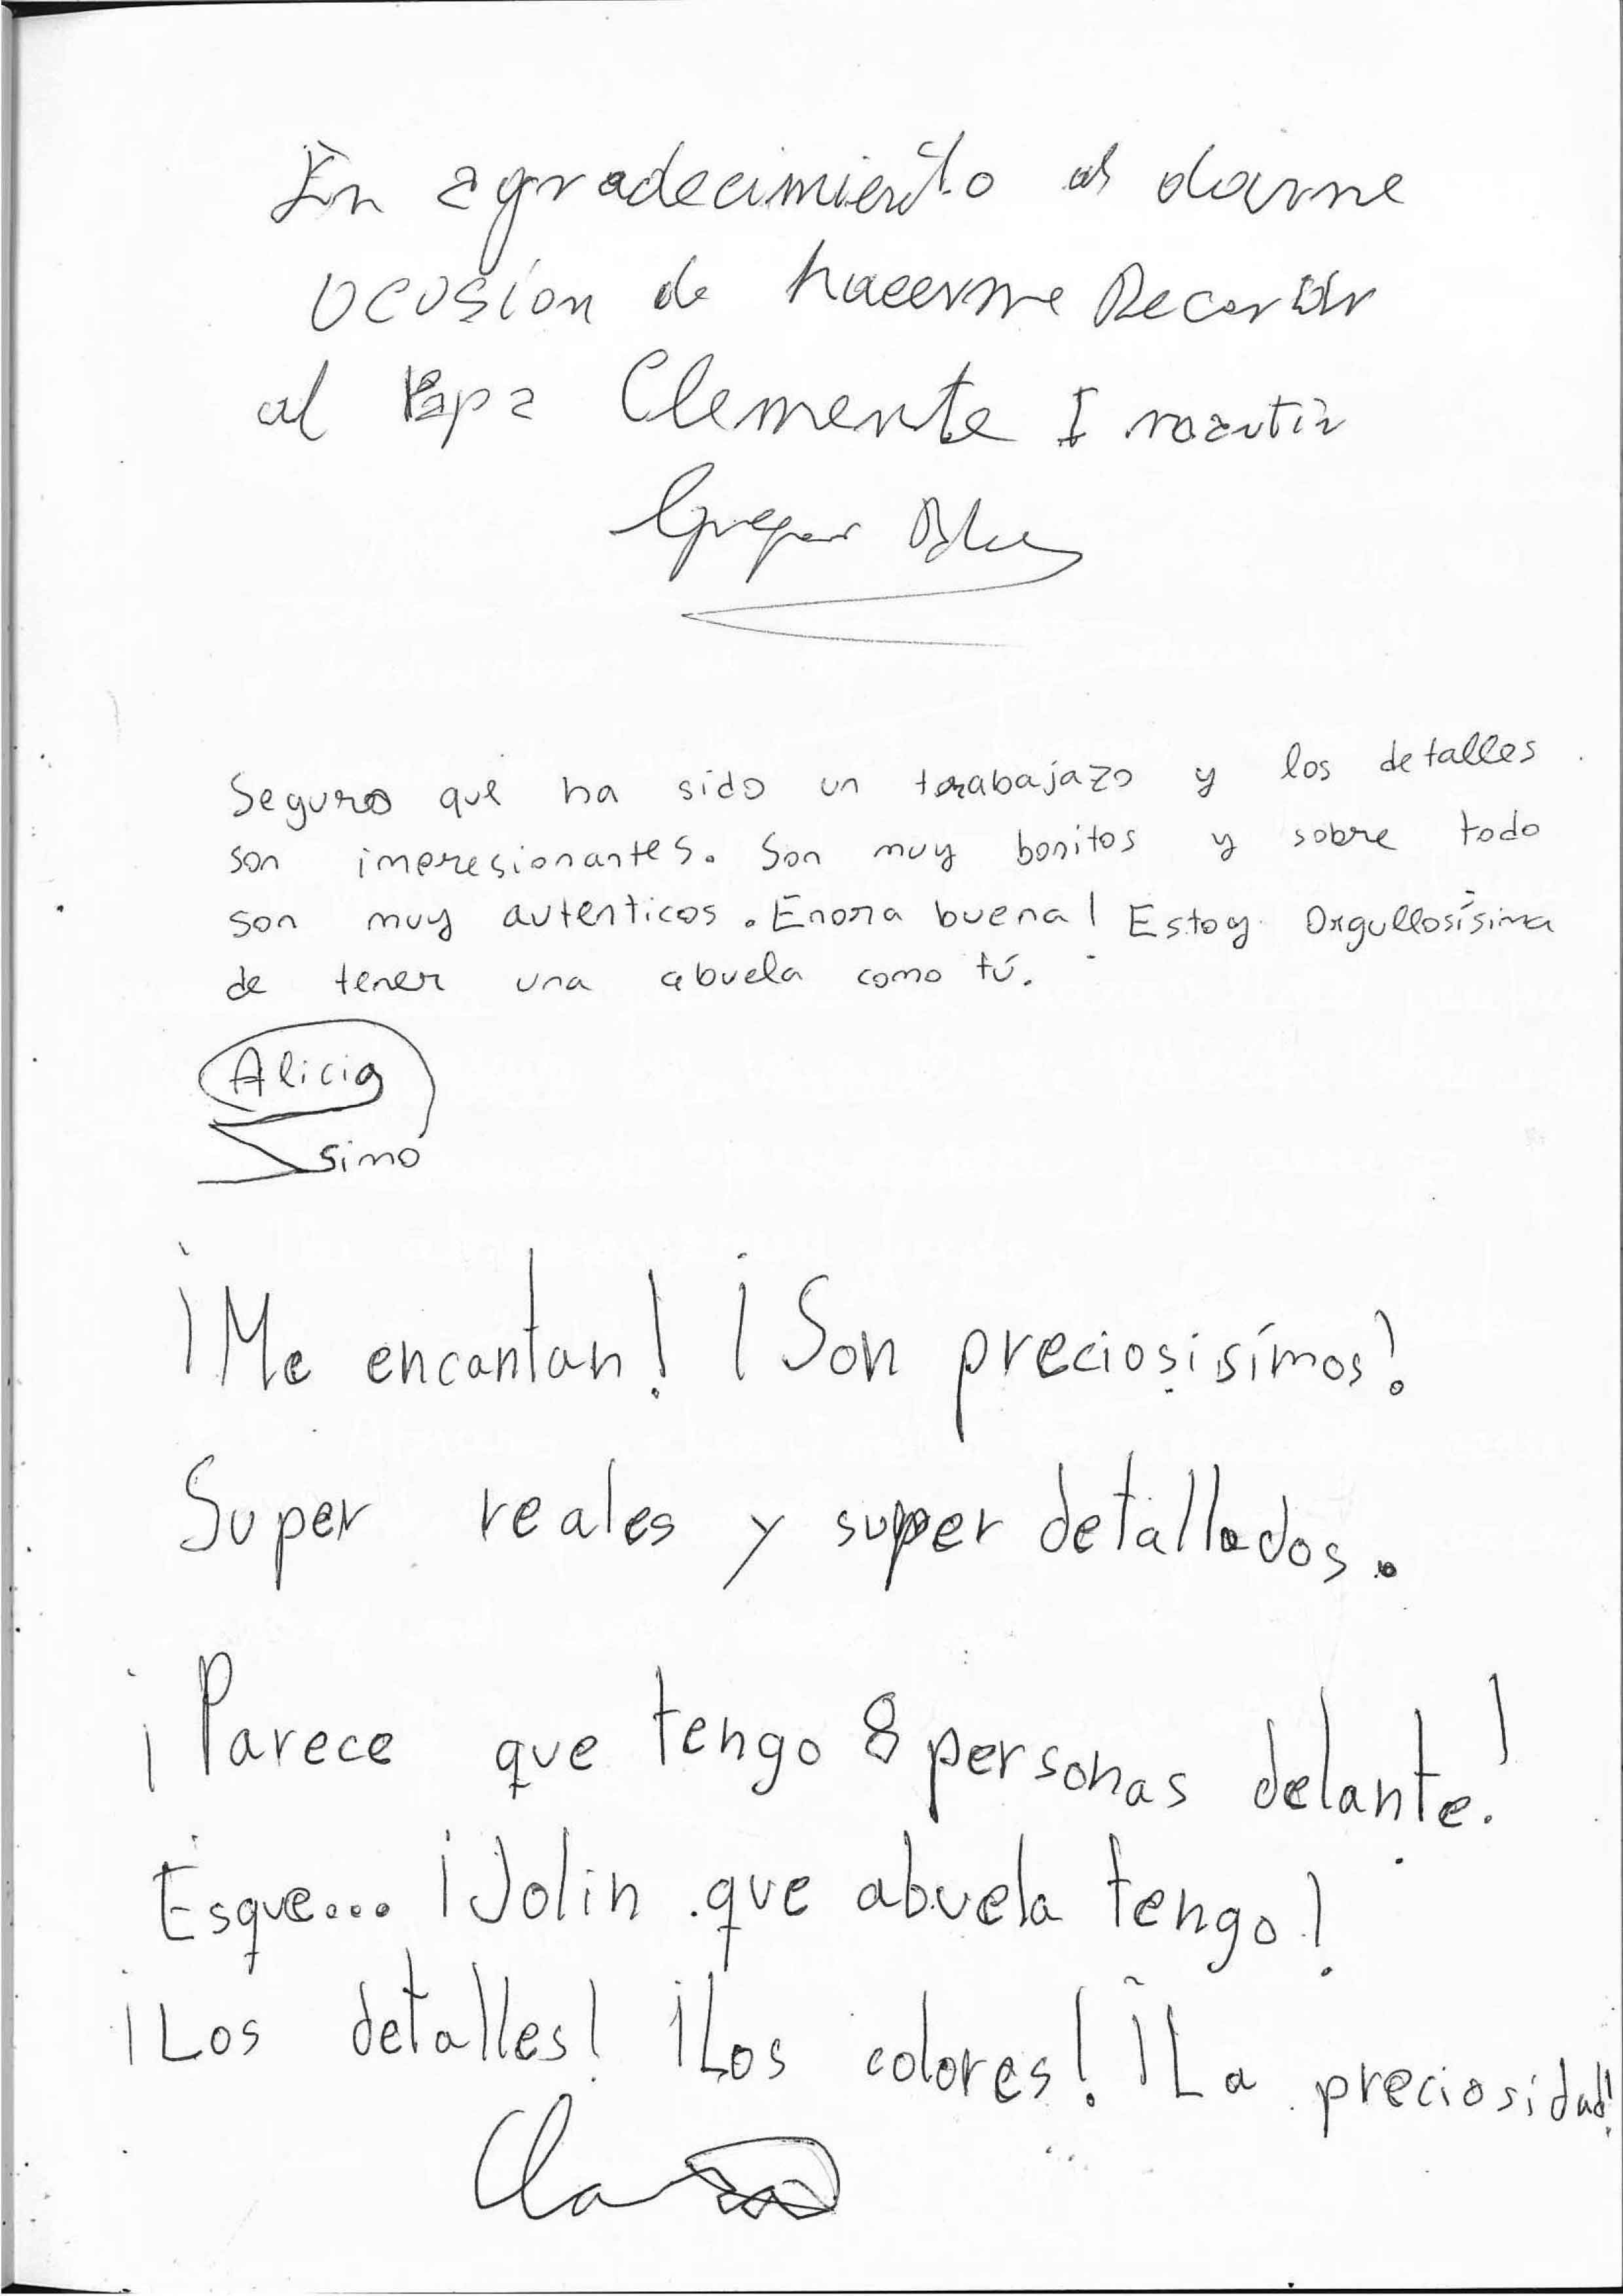 En agradecimiento al darme
ocasion de hacerme Recordar
al Papa Clemente I martir
Seguro que ha sido un trabajazo y los detalles
son impresionantes. Son muy bonitos y sobre todo
son muy autenticos. Enora buena! Estoy orgullosísima
de tener una abuela como tú.
Alicia
Simó
¡Me encantan! ¡Son preciosisímos!
Super reales y super detallados.
¡Parece que tengo 8 personas delante!
Esque... ¡Jolin que abuela tengo!
¡Los detalles! ¡Los colores! ¡La preciosidad!
Clara